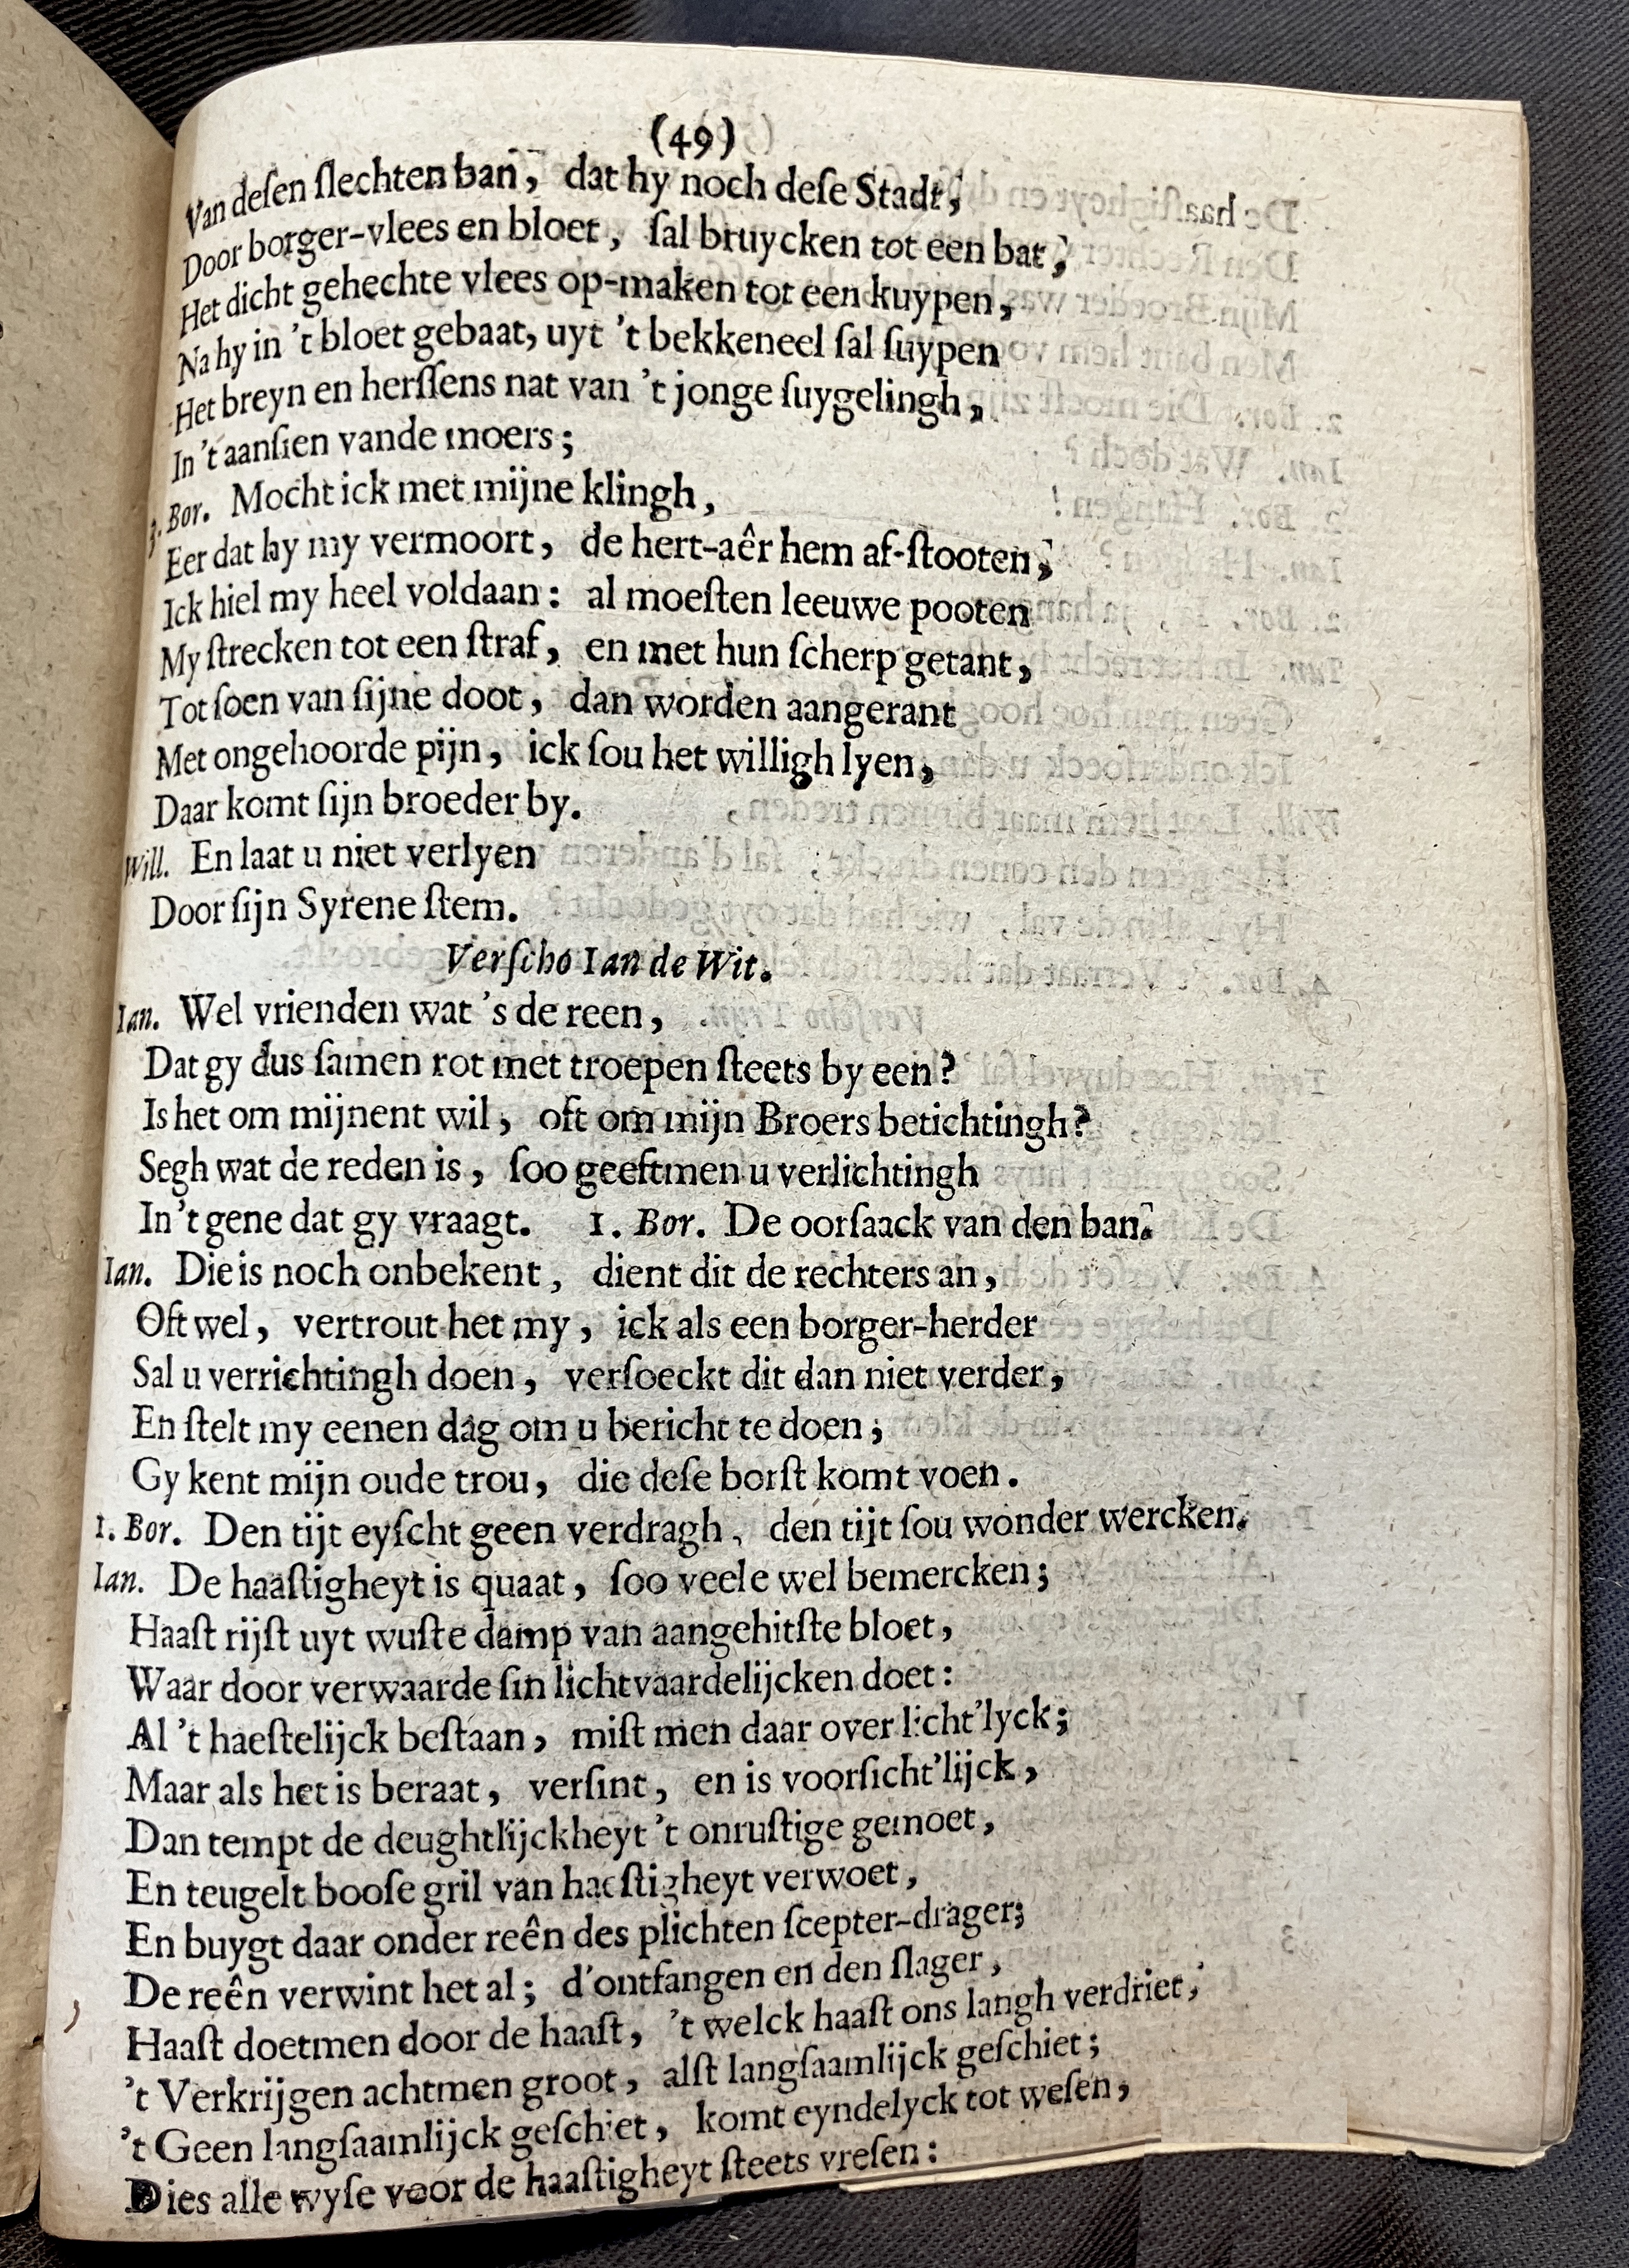 (49)
Van deſen ſlechten ban, dat hy noch deſe Stadt,
Door borger-vlees en bloet, ſal bruycken tot een bat,
Het dicht gehechte vlees op-maken tot een kuypen,
Na hy in 't bloet gebaat, uyt 't bekkeneel ſal ſuypen
Het breyn en herſſens nat van 't jonge ſuygelingh,
In 't aanſien vande moers;
3. Bor. Mocht ick met mijne klingh,
Eer dat hy my vermoort, de hert-aêr hem af-ſtooten,
Ick hiel my heel voldaan: al moeſten leeuwe pooten
My ſtrecken tot een ſtraf, en met hun ſcherp getant,
Tot ſoen van ſijne doot, dan worden aangerant
Met ongehoorde pijn, ick ſou het willigh lyen,
Daar komt ſijn broeder by.
Will. En laat u niet verlyen
Door ſijn Syrene ſtem.
Verſcho Ian de Wit.
Ian. Wel vrienden wat 's de reen,
Dat gy dus ſamen rot met troepen ſteets by een?
Is het om mijnent wil, oft om mijn Broers betichtingh?
Segh wat de reden is, ſoo geeftmen u verlichtingh
In 't gene dat gy vraagt. 1. Bor. De oorſaack van den ban.
Ian. Die is noch onbekent, dient dit de rechters an,
Oft wel, vertrout het my, ick als een borger-herder
Sal u verrichtingh doen, verſoeckt dit dan niet verder,
En ſtelt my eenen dag om u bericht te doen;
Gy kent mijn oude trou, die deſe borſt komt voen.
1. Bor. Den tijt eyſcht geen verdragh, den tijt ſou wonder wercken.
Ian. De haaſtigheyt is quaat, ſoo veele wel bemercken;
Haaſt rijſt uyt wuſte damp van aangehitſte bloet,
Waar door verwaarde ſin lichtvaardelijcken doet:
Al 't haeſtelijck beſtaan, miſt men daar over licht'lyck;
Maar als het is beraat, verſint, en is voorſicht'lijck,
Dan tempt de deughtlijckheyt 't onruſtige gemoet,
En teugelt booſe gril van haeſtigheyt verwoet,
En buygt daar onder reên des plichten ſcepter-drager;
De reên verwint het al; d'ontfangen en den ſlager,
Haaſt doetmen door de haaſt, 't welck haaſt ons langh verdriet,
't Verkrijgen achtmen groot, alſt langſaamlijck geſchiet;
't Geen langſaamlijck geſchiet, komt eyndelyck tot weſen,
Dies alle wyſe voor de haaſtigheyt ſteets vreſen: